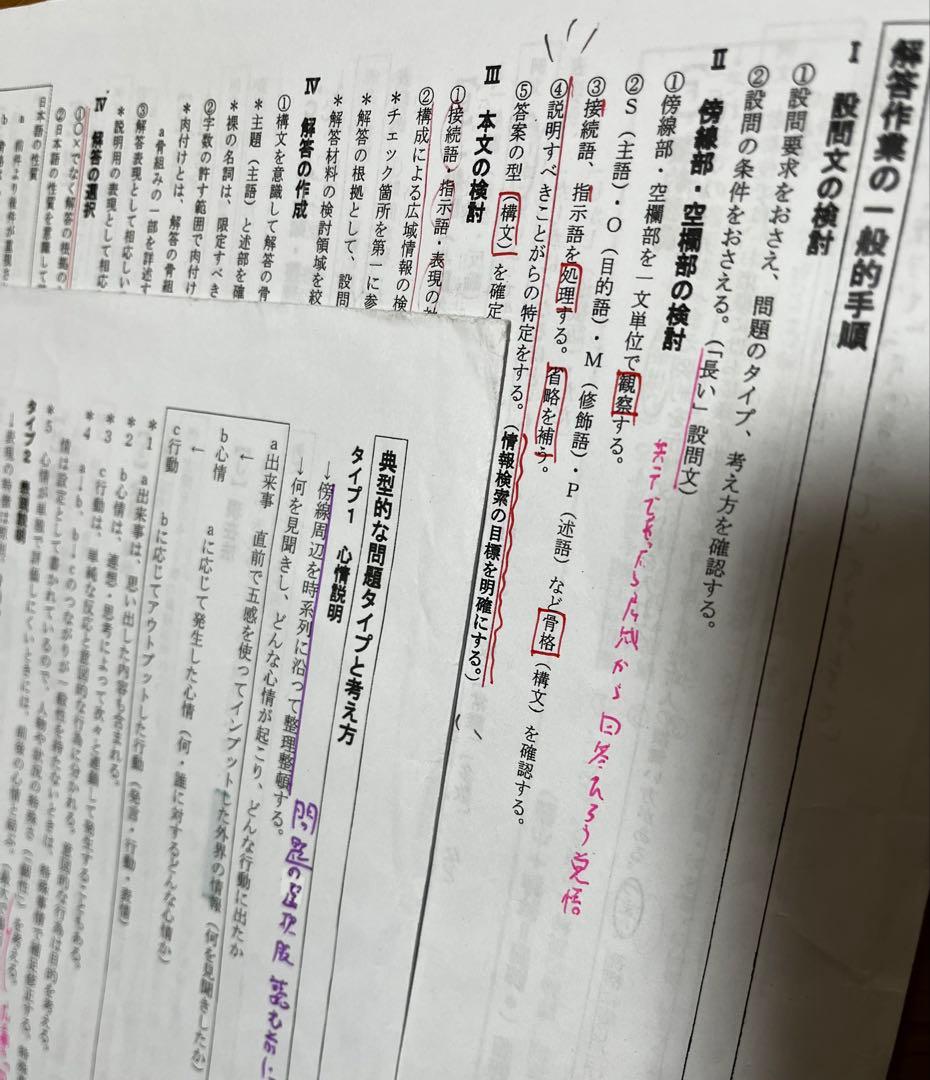 解答作業の一般的手順
Ⅰ 設問文の検討
①設問要求をおさえ、問題のタイプ、考え方を確認する。
②設問の条件をおさえる。(「長い」設問文)
Ⅱ 傍線部・空欄部の検討
①傍線部・空欄部を一文単位で観察する。
②S(主語)・O(目的語)・M(修飾語)・P(述語)など骨格(構文)を確認する。
から回答ひろう覚悟。
③接続語、指示語を処理する。省略を補う。
④説明すべきことがらの特定をする。(情報検索の目標を明確にする。)
⑤答案の型(構文)を確定
Ⅲ 本文の検討
①接続語・指示語・表現の
②構成による広域情報の検
*チェック箇所を第一に参
*解答の根拠として、設問
*解答材料の検討領域を絞
Ⅳ 解答の作成
①構文を意識して解答の骨
*主題(主語)と述部を確
*裸の名詞は、限定すべき
②字数の許す範囲で肉付け
*肉付けとは、解答の骨組
a骨組みの一部を詳述す
③解答表現として相応しい
*説明用の表現として相応
Ⅳ 解答の選択
①○×でなく解答の根拠の
②日本語の性質を意識して
日本語の性質
a 前件より後件が重視さ
典型的な問題タイプと考え方
タイプ1 心情説明
→傍線周辺を時系列に沿って整理整頓する。
問題の選択肢 読む前に
→何を見聞きし、どんな心情が起こり、どんな行動に出たか
a出来事 直前で五感を使ってインプットした外界の情報(何を見聞きしたか)
←
b心情 aに応じて発生した心情(何・誰に対するどんな心情か)
←
c行動 bに応じてアウトプットした行動(発言・行動・表情)
*1 a出来事は、思い出した内容も含まれる。
*2 b心情は、連想・思考によって次々と連鎖して発生することもある。
*3 c行動は、単純な反応と意図的な行為に分かれる。意図的な行為は目的を考える。
*4 a→b、b→cのつながりが一般性を持たないときは、特殊事情で補足修正する。特殊
情は設定として書かれているので、人物や状況の特殊さ(「個性」)を考える。
*5 心情が単純で評価しにくいときには、前後の心情と組合
タイプ2 表現説明